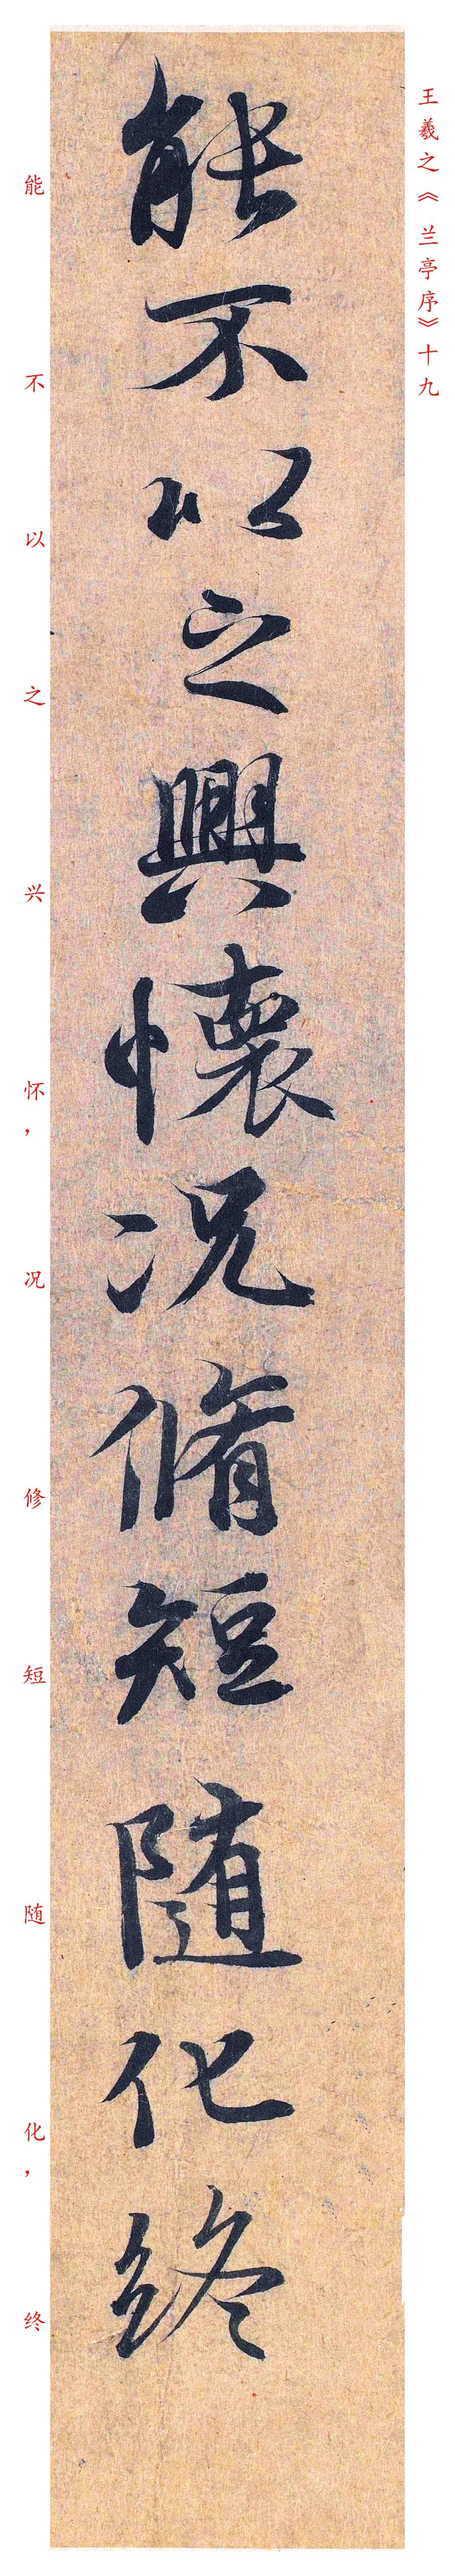 王羲之《兰亭序》十九
能不以之興懷況脩短隨化終
能不以之兴怀，况修短随化，终